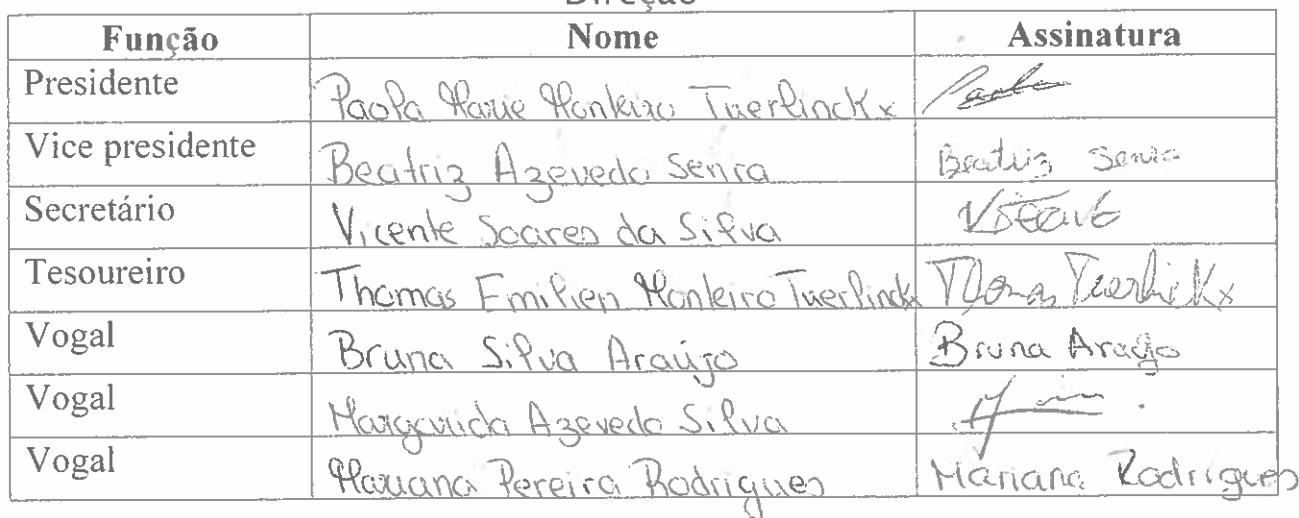 Direção
Função Nome Assinatura
Presidente Paola Marie Monteiro Tuerlinckx Paola
Vice presidente Beatriz Azevedo Senra Beatriz Senra
Secretário Vicente Soares da Silva Vicente
Tesoureiro Thomas Emilien Monteiro Tuerlinckx Thomas Tuerlinckx
Vogal Bruna Silva Araújo Bruna Araújo
Vogal Margarida Azevedo Silva
Vogal Mariana Pereira Rodrigues Mariana Rodrigues